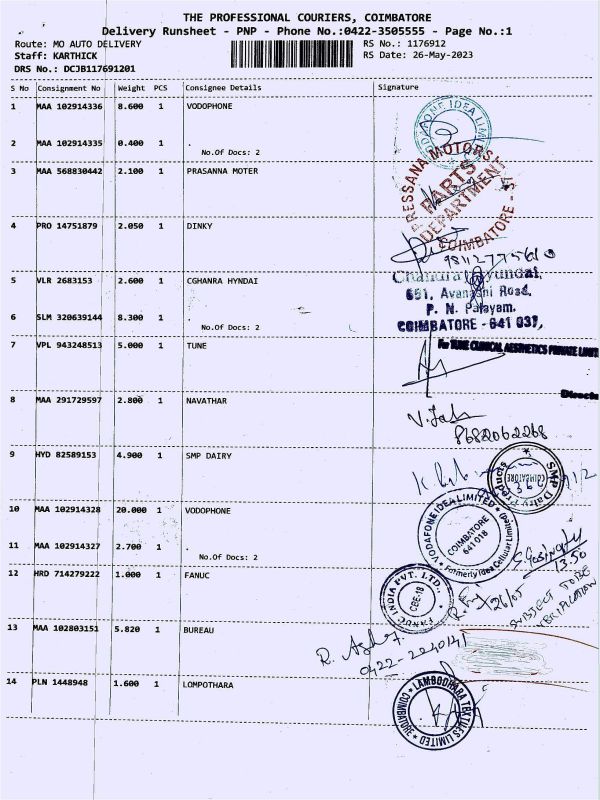 THE PROFESSIONAL COURIERS, COIMBATORE
Delivery Runsheet - PNP - Phone No.:0422-3505555 - Page No.:1
Route: MO AUTO DELIVERY
RS No.: 1176912
Staff: KARTHICK
RS Date: 26-May-2023
DRS No.: DCJB117691201
S No Consignment No Weight PCS Consignee Details Signature
1 MAA 102914336 8.600 1 VODOPHONE
2 MAA 102914335 0.400 1 .
No.Of Docs: 2
3 MAA 568830442 2.100 1 PRASANNA MOTER
PRESSANA MOTORS
PARTS
DEPARTMENT
COIMBATORE
4 PRO 14751879 2.050 1 DINKY
5 VLR 2683153 2.600 1 CGHANRA HYNDAI
Chandra Hyundai,
651, Avanashi Road,
P. N. Palayam,
COIMBATORE - 641 037,
6 SLM 320639144 8.300 1 .
No.Of Docs: 2
7 VPL 943248513 5.000 1 TUNE
For TUNE CLINICAL AESTHETICS PRIVATE LIMIT
8 MAA 291729597 2.800 1 NAVATHAR
8682062268
9 HYD 82589153 4.900 1 SMP DAIRY
SMP Dairy Products
COIMBATORE
10 MAA 102914328 20.000 1 VODOPHONE
VODAFONE IDEA LIMITED
(Formerly Idea Cellular Limited)
COIMBATORE
641018
11 MAA 102914327 2.700 1 .
No.Of Docs: 2
13.50
SUBJECT TO BE
VERIFICATION
12 HRD 714279222 1.000 1 FANUC
FANUC INDIA PVT. LTD.,
CBE-18
26/05
13 MAA 102803151 5.820 1 BUREAU
0422-2240141
14 PLN 1448948 1.600 1 LOMPOTHARA
LAMBODHARA TEXTILES LIMITED
COIMBATORE